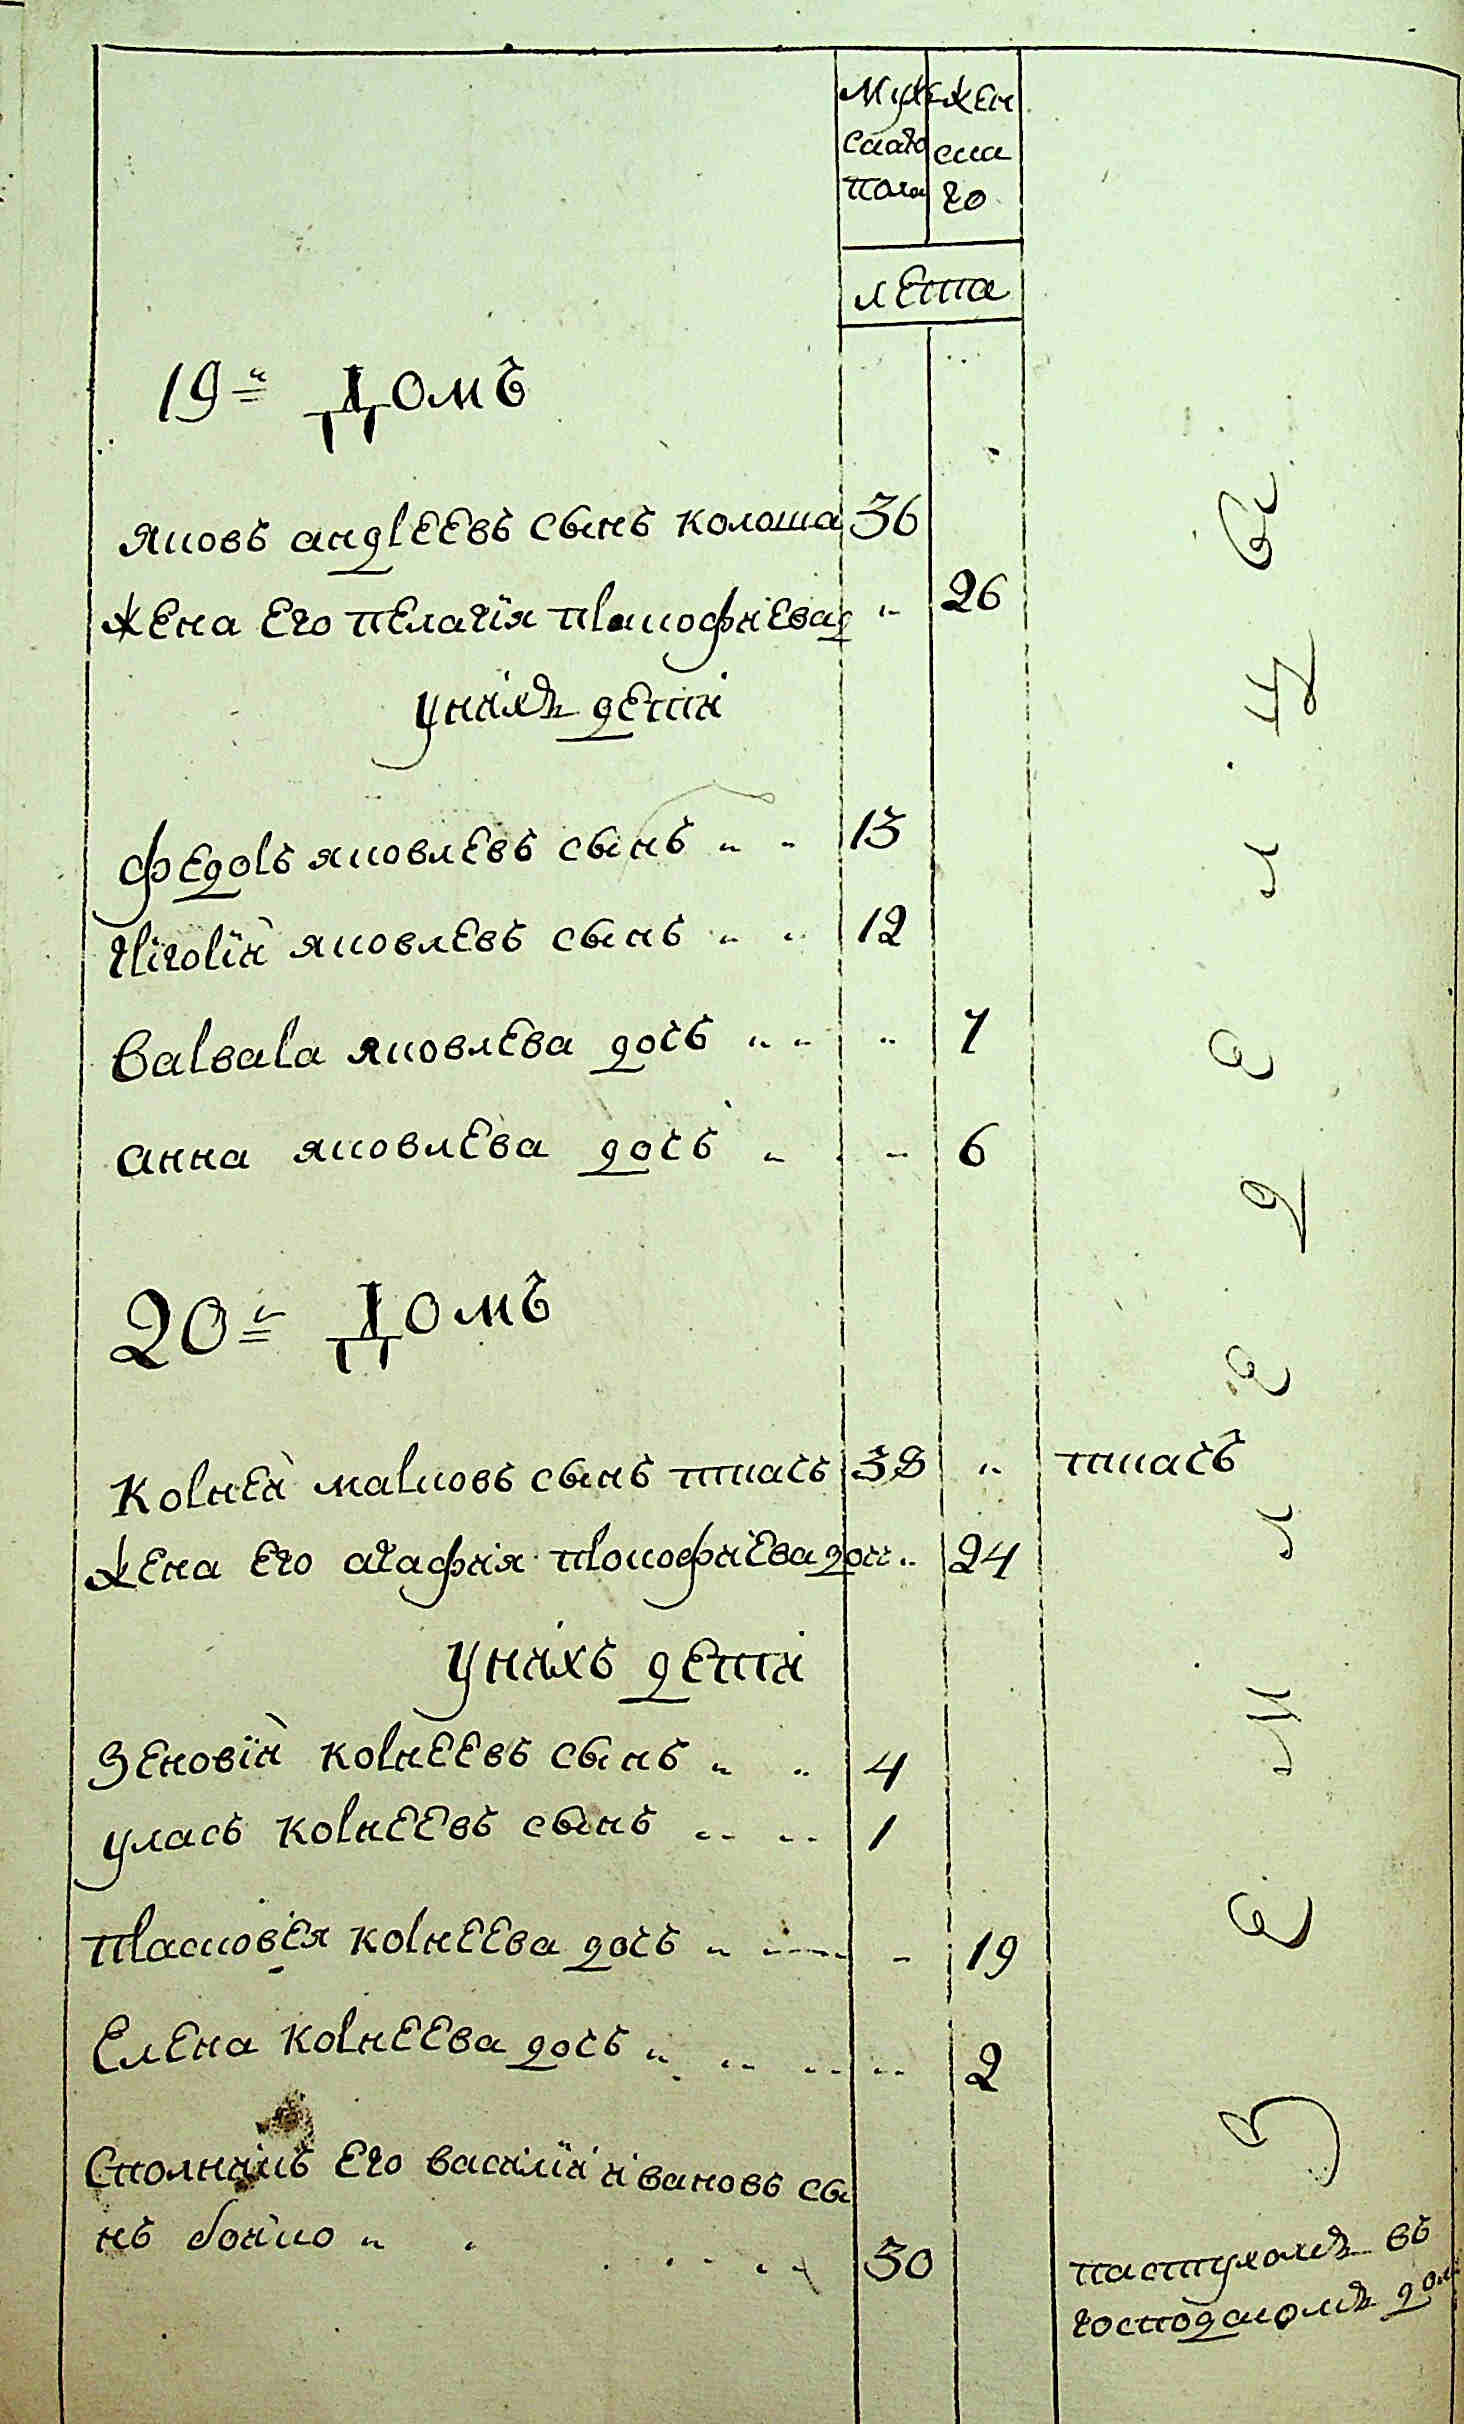 Муж
скаго
пола
Жен
ска
го
лета
19й Домъ
Яковъ андреевъ сынъ колоша 36
жена его пелагїя прокофиева д „ 26
у нихъ дети
федоръ яковлевъ сынъ „ „ 13
григорїй яковлевъ сынъ „ „ 12
варвара яковлева дочь „ „ „ 7
анна яковлева дочь „ „ 6
20й Домъ
корней марковъ сынъ ткачь 38 „ ткачь
жена его агафия прокофиева дочь „ 24
у нихъ дети
Зеновїй корнеевъ сынъ „ „ 4
уласъ корнеевъ сынъ „ „ 1
прасковея корнеева дочь „ „ 19
Елена корнеева дочь „ „ „ „ 2
василїй ивановъ сы
нъ бойко „ „ 30
пастухомъ въ
господскомъ дом
Земледелицы